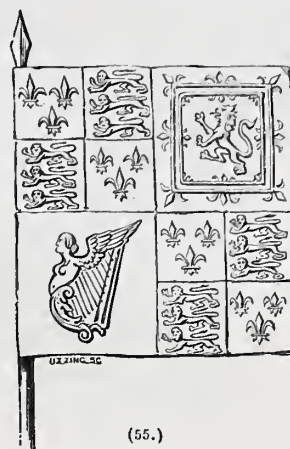 UTTING SC
(55.)